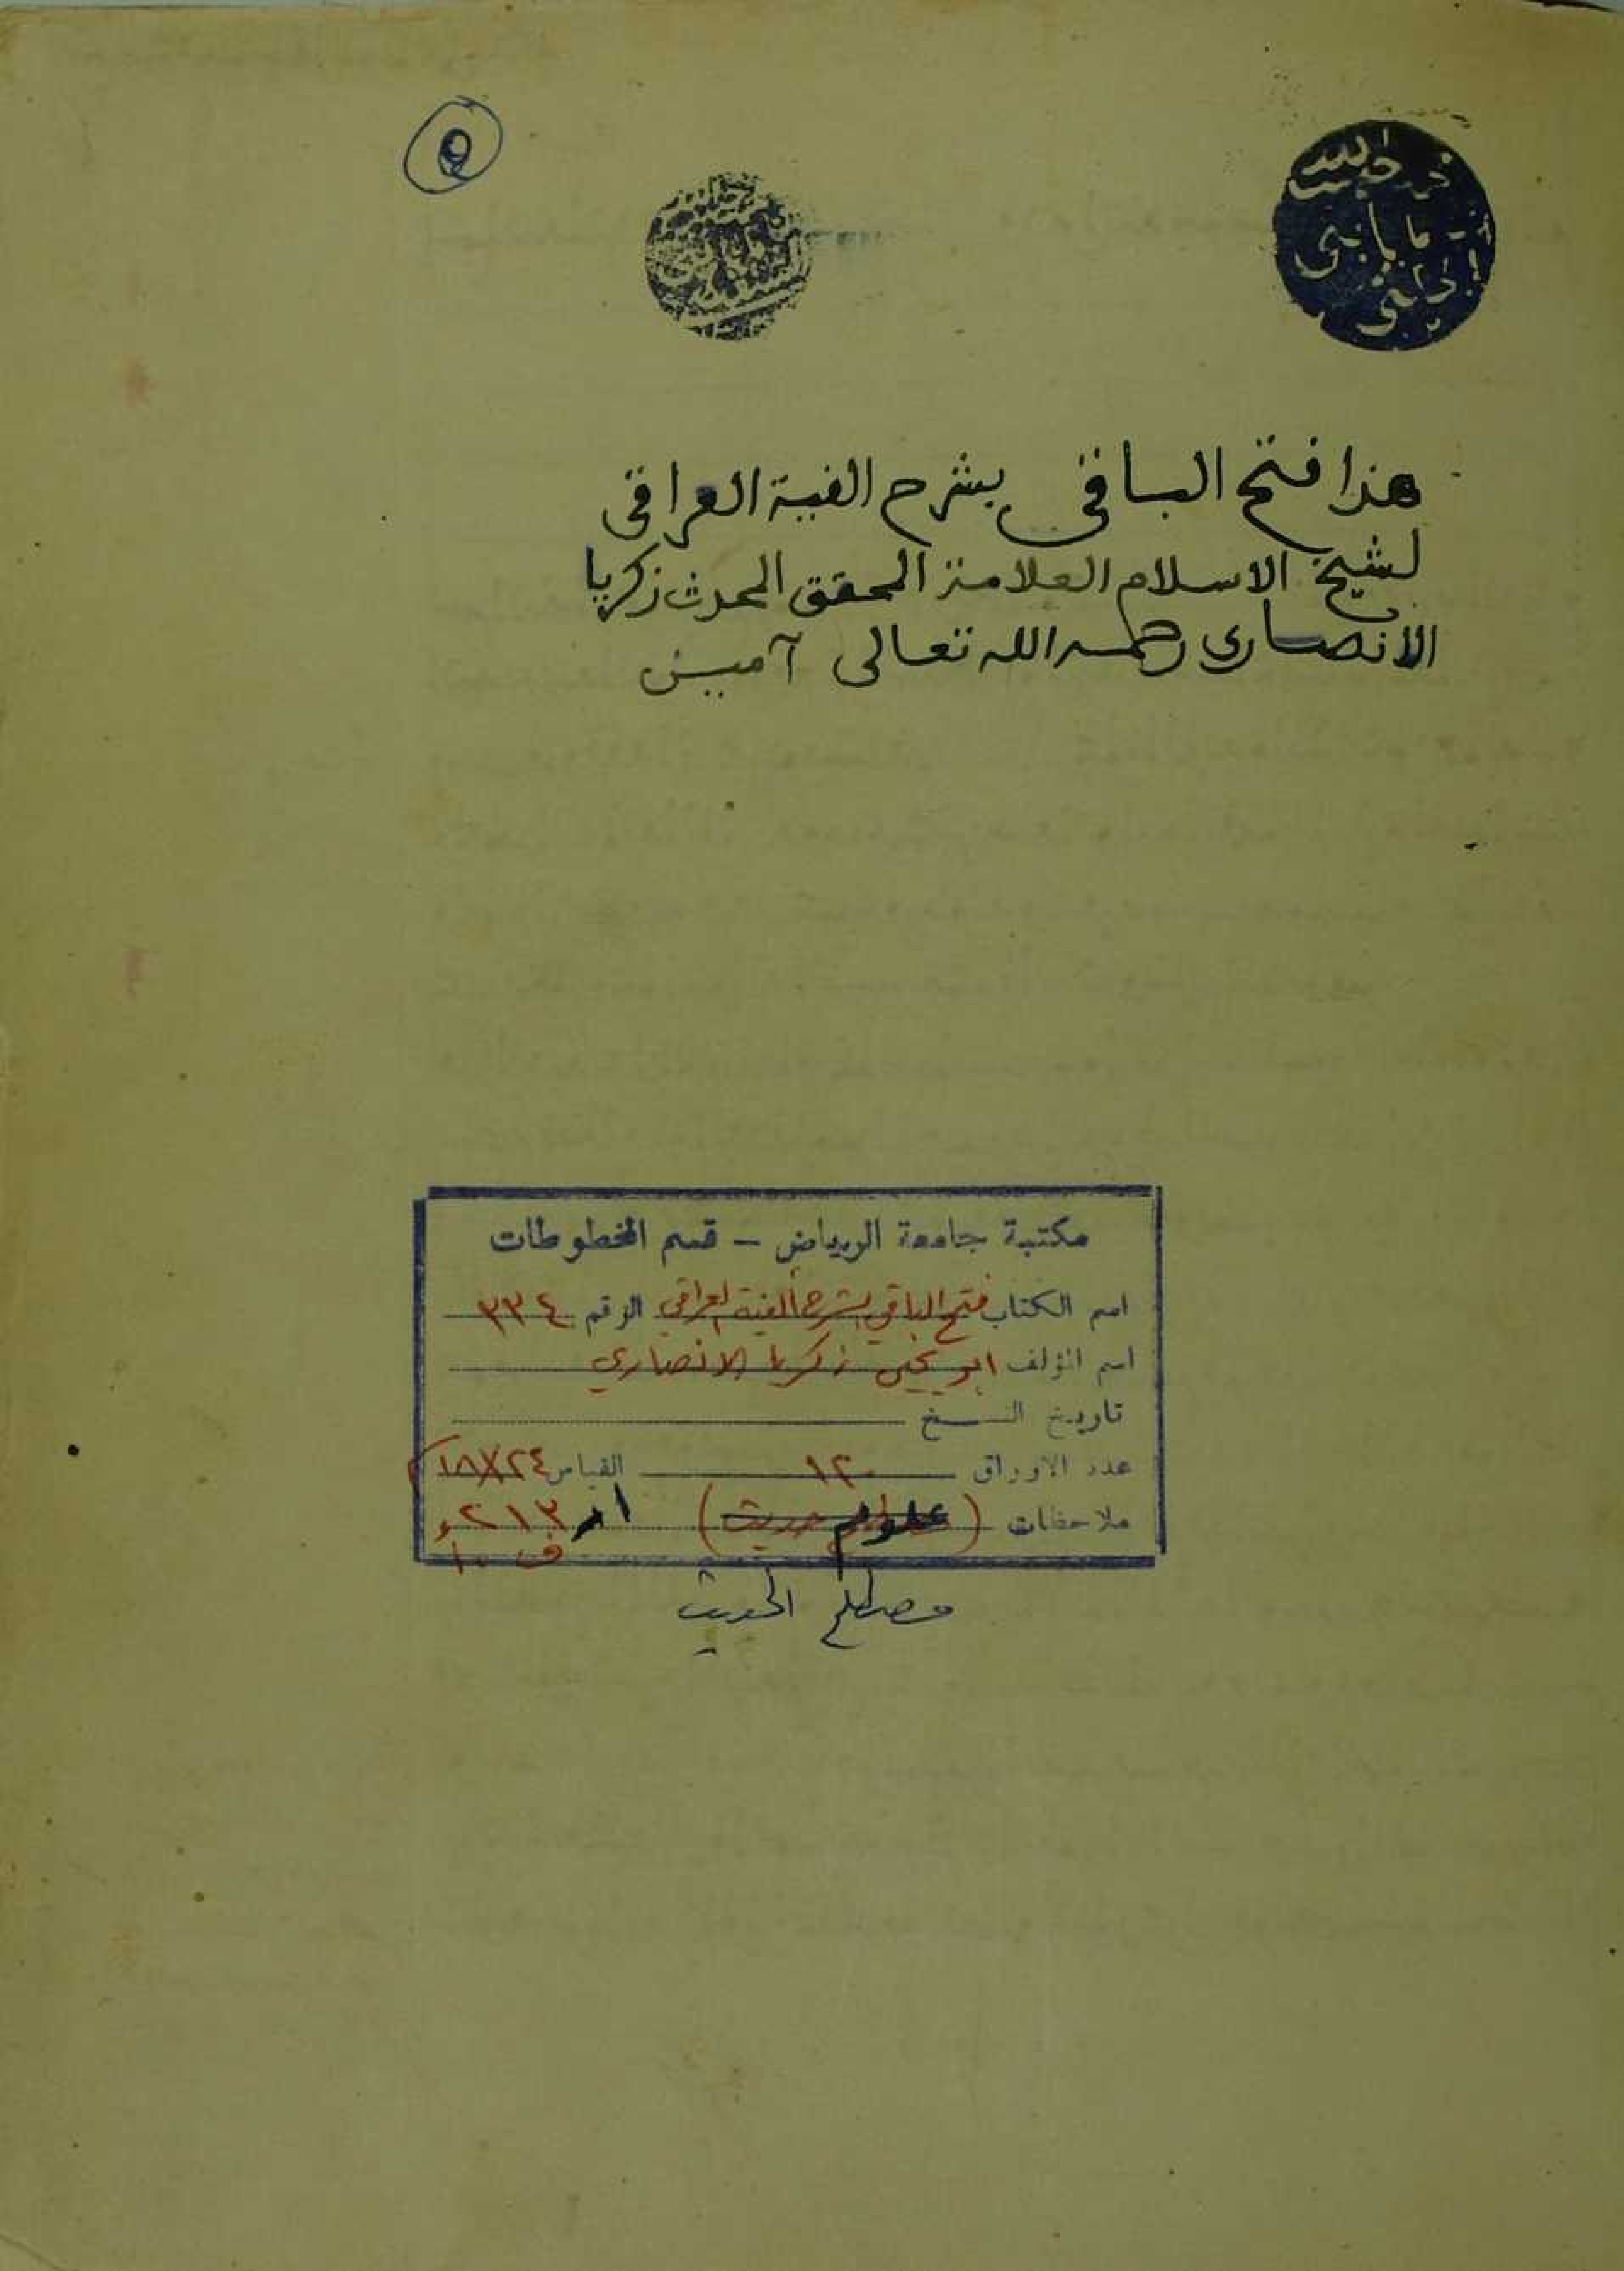 هذا فتح الباقي بشرح الفية العراقي
لشيخ الاسلام العلامة المحقق المحدث زكريا
الانصاري رحمه الله تعالى آمين
مكتبة جامعة الرياض – قسم المخطوطات
اسم الكتاب فتح الباقي بشرح ألفية العراقي الرقم ٣٣٤
اسم المؤلف ابو يحيى زكريا الانصاري
تاريخ النسخ
عدد الاوراق ١٢٠ القياس ٢٤×١٨
ملاحظات (علوم حديث) ٢١٣٫١
ف ١٠
مصطلح الحديث